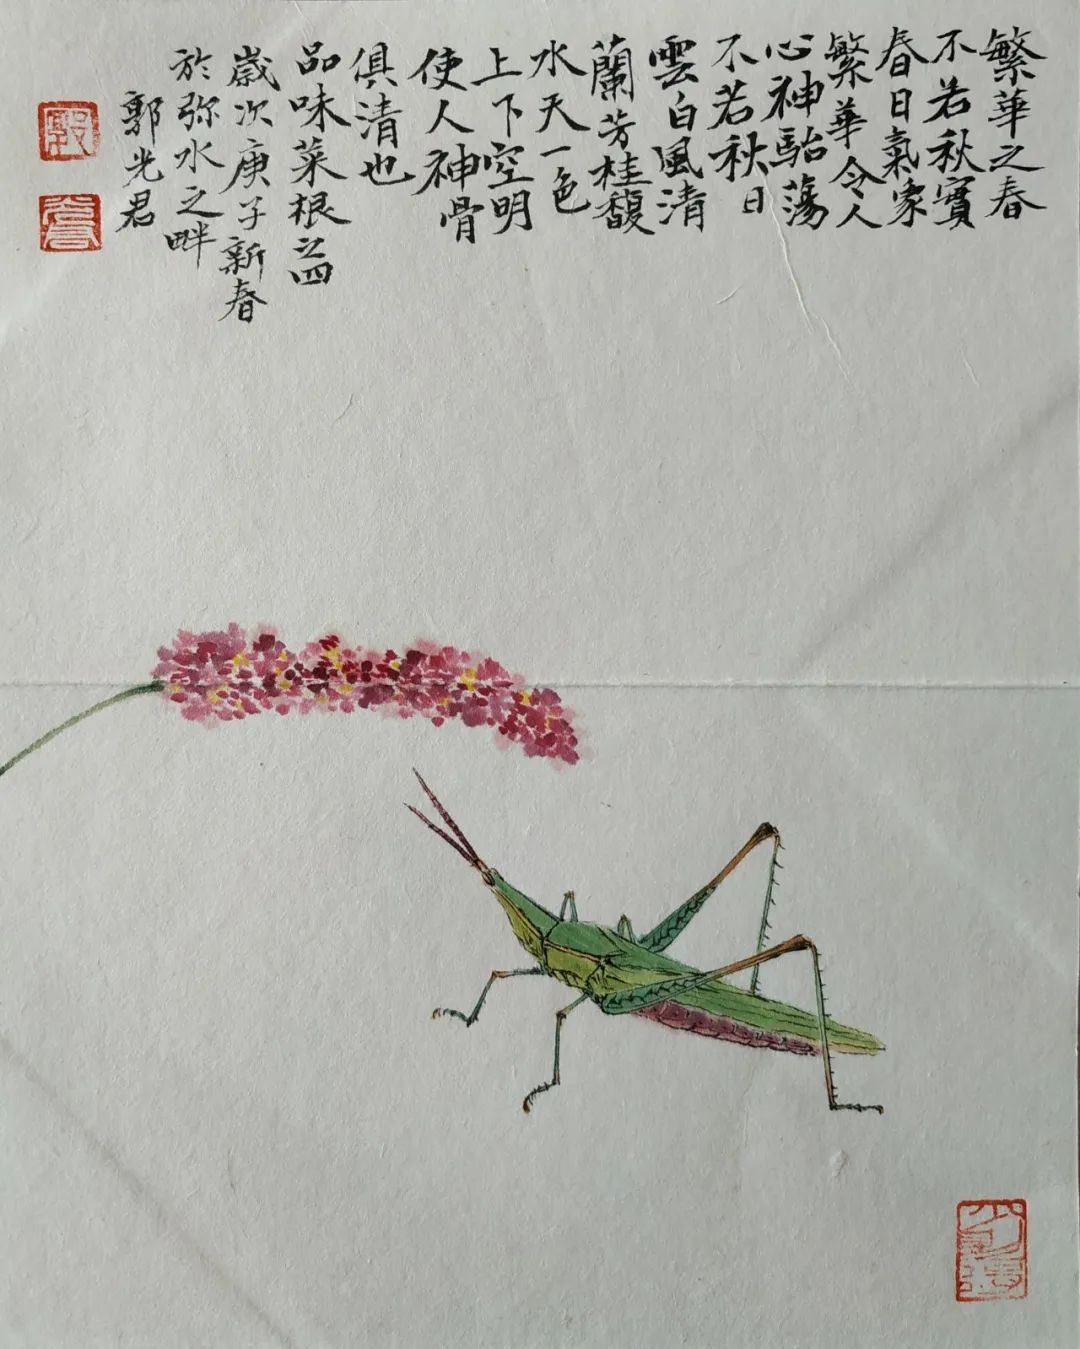 繁華之春
不若秋實
春日氣象
繁華令人
心神駘蕩
不若秋日
雲白風清
蘭芳桂馥
水天一色
上下空明
使人神骨
俱清也
品味菜根之四
歲次庚子新春
於弥水之畔
郭光君